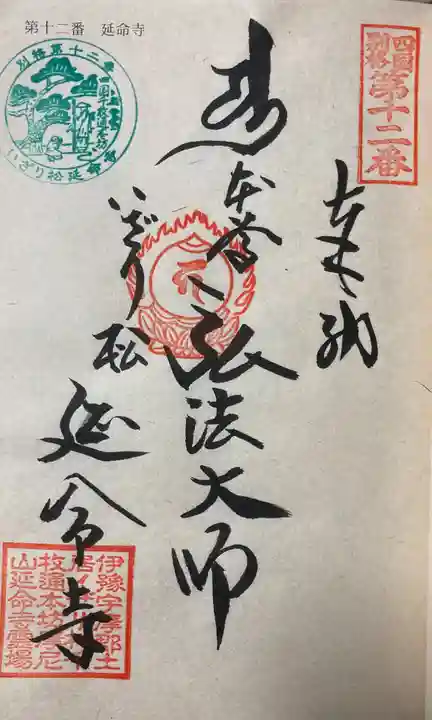 第十二番 延命寺
四国
別格
第十二番
奉納
本尊 弘法大師
いざり松
延命寺
別格第十二番
いざり松延命寺
伊豫宇摩郡土
枚通本坊
山延命寺霊場